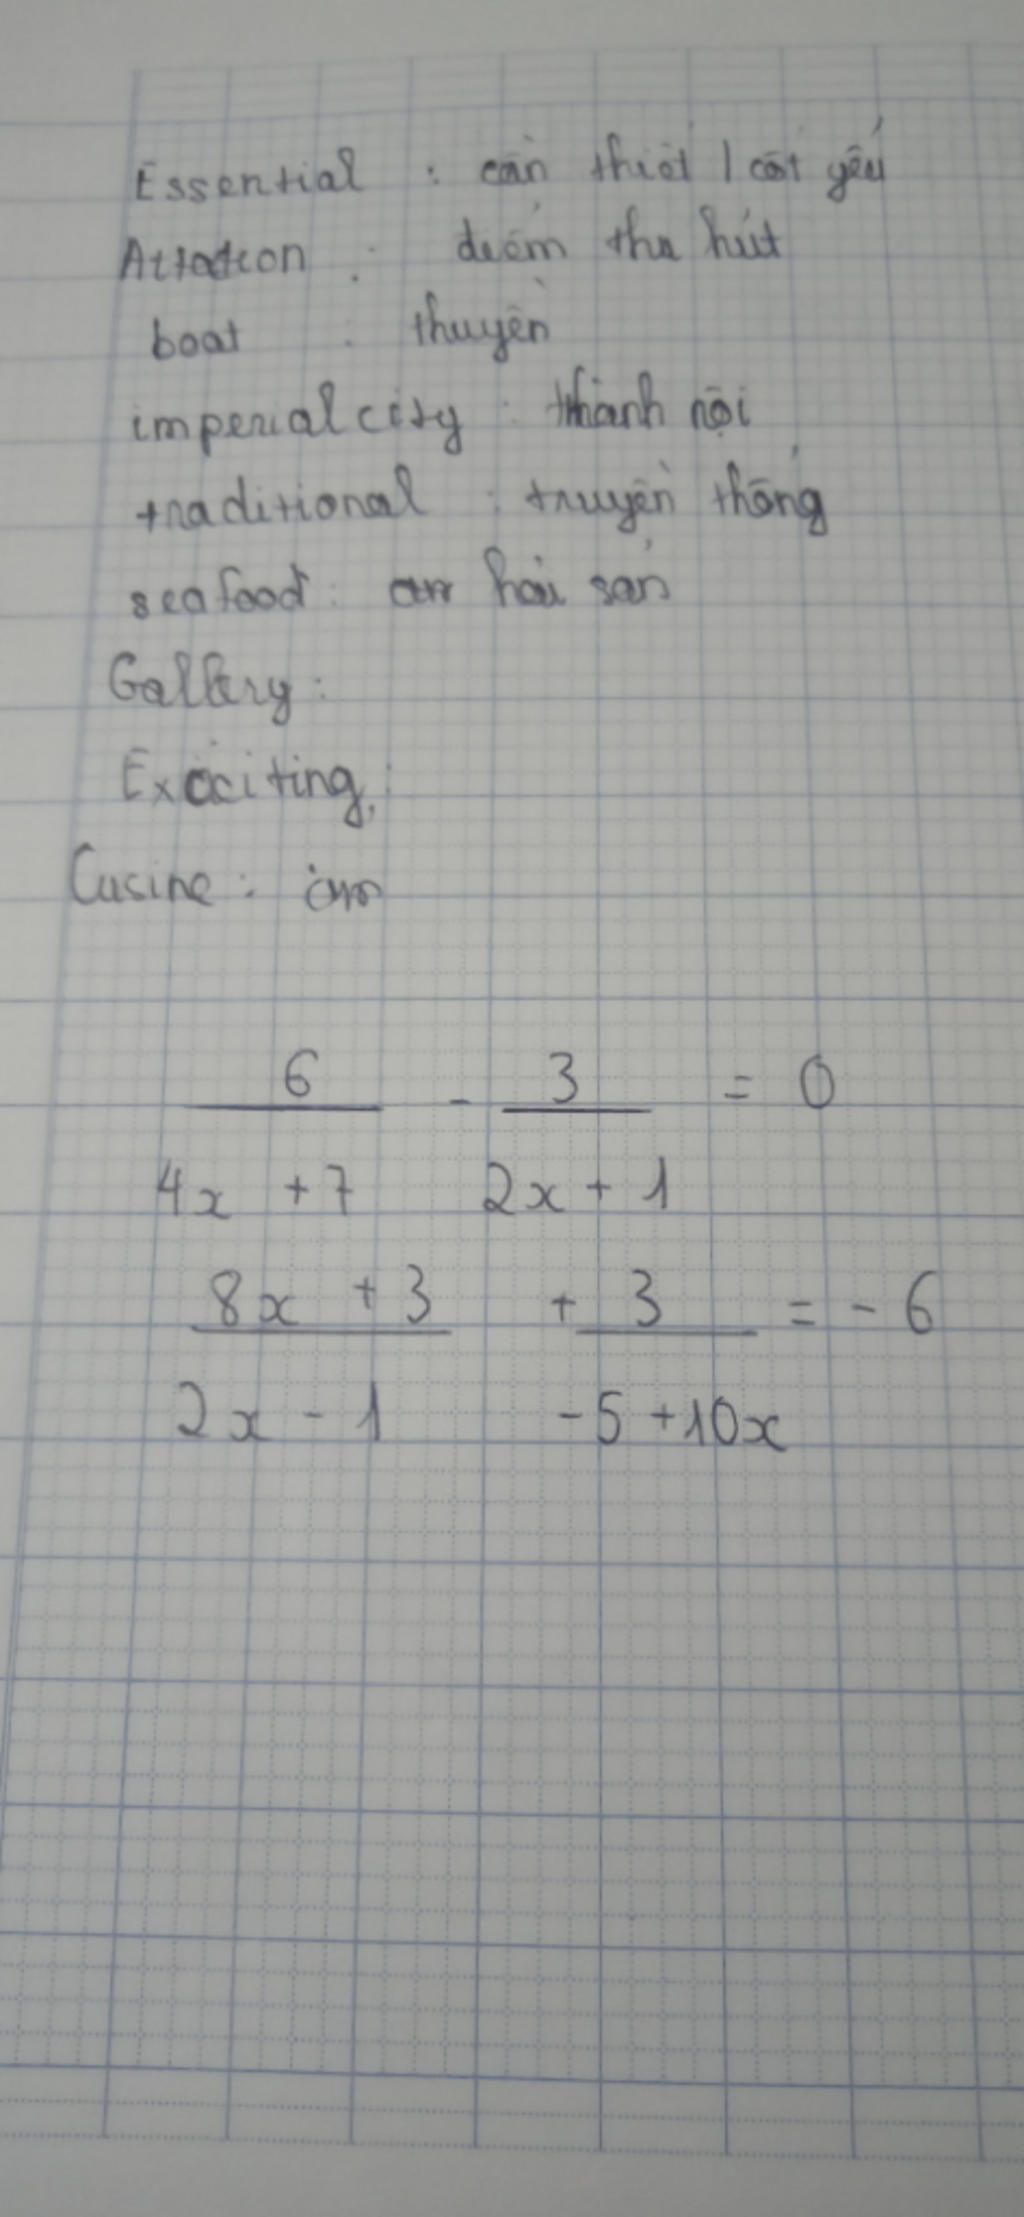 Essential : cần thiết / cốt yếu
Attation : điểm thu hút
boat : thuyền
imperial city : thành nội
traditional : truyền thống
seafood : hải sản
Gallery :
Exciting :
Cusine :
6/(4x + 7) - 3/(2x + 1) = 0
(8x + 3)/(2x - 1) + 3/(-5 + 10x) = - 6